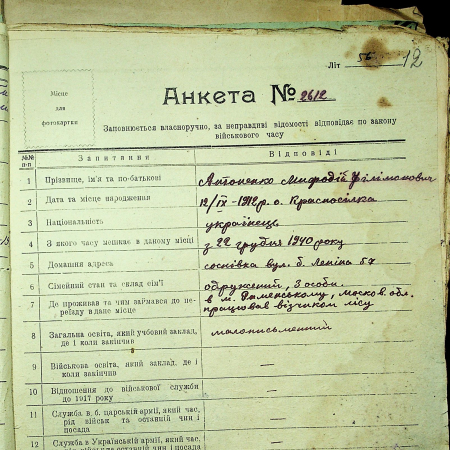 Літ 56 12
Місце
для
фотокартки
Анкета № 2612
Заповнюється власноручно, за неправдиві відомості відповідає по закону
військового часу
№№ п-п Запитання Відповіді
1 Прізвище, ім'я та по-батькові Антоненко Мифодій Філімонович
2 Дата та місце народження 12/IX -1912 р. с. Красносілка
3 Національність українець
4 З якого часу мешкає в даному місці з 22 грудня 1940 року
5 Домашня адреса соснівка вул. б. Леніна
6 Сімейний стан та склад сім'ї одружений, 3 особи.
7 Де проживав та чим займався до пе-
реїзду в дане місце
в м. Раменському, москов. обл.
працював візчиком лісу
8 Загальна освіта, який учбовий заклад,
де і коли закінчив
малописьменний
9 Військова освіта, який заклад, де і
коли закінчив —
10 Відношення до військової служби
до 1917 року —
11 Служба в. б. царській армії, який час,
рід військ та останній чин і
посада —
12 Служба в Українській армії, який час,